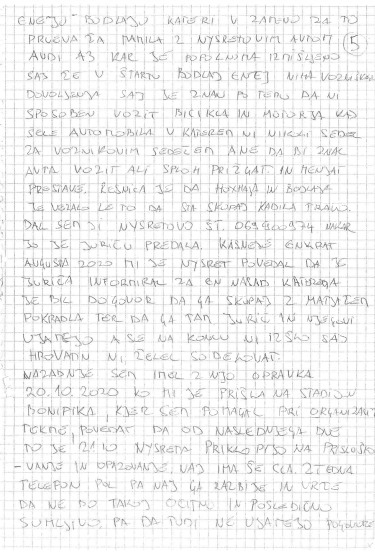 ENEJU BODLAJU KATERI V ZAMENO ZA TO
PREVAŽA MAMILA Z NYSRETOVIM AVTOM 5
AUDI A3 KAR JE POPOLNOMA IZMIŠLJENO
SAJ ŽE V ŠTARTU BODLAJ ENEJ NIMA VOZNIŠKEGA
DOVOLJENJA SAJ JE ZNAN PO TEM DA NI
SPOSOBEN VOZIT BICIKLA IN MOTORJA KAJ
ŠELE AUTOMOBILA V KATEREM NI NIKOLI SEDEL
ZA VOZNIKOVIM SEDEŽEM A NE DA BI ZNAL
AVTA VOZIT ALI SPLOH PRIŽGAT IN MENJAT
PRESTAVE. RESNICA JE DA HOXHAJA IN BODLAJA
JE VEZALO LE TO DA STA SKUPAJ KADILA TRAVO.
DAL SEM JI NYSRETOVO ŠT. 069900974
JO JE JURIČU PREDALA. KASNEJE ENKRAT
AUGUSTA 2020 MI JE NYSRET POVEDAL DA JE
JURIČA INFORMIRAL ZA EN NASAD KATEREGA
JE BIL DOGOVOR DA GA SKUPAJ Z MATJAŽEM
POKRADLA TER DA GA TAM JURIČ IN NJEGOVI
UJAMEJO A SE NA KONCU NI IZŠLO SAJ
HROVATIN NI ŽELEL SODELOVAT.
NAZADNJE SEM IMEL Z NJO OPRAVKA
20.10.2020 KO MI JE PRIŠLA NA STADION
BONIFIKA, KJER SEM POMAGAL PRI ORGANIZACIJI
TEKME, POVEDAT DA OD NASLEDNJEGA DNE
TO JE 21.10 NYSRETA PRIKLOPIJO NA PRISLUŠKO
-VANJE IN OPAZOVANJE, NAJ IMA ŠE CCA. 2 TEDNA
TELEFON POL PA NAJ GA RAZBIJE IN VRŽE
DA NE BO TAKOJ OČITNO IN POSLEDIČNO
SUMLJIVO, PA DA TUDI NE UJAMEJO POGOVORE